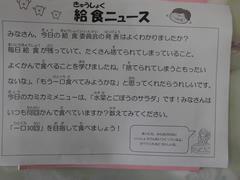 きゅうしょく
給食ニュース
みなさん、今日の給食委員会の発表はよくわかりましたか?
毎日給食が残っていて、たくさん捨てられてしまっていること、
よくかんで食べることを学びましたね。「捨てられてしまうともったい
ないな」「もう一口食べてみようかな」と思ってくれたらうれしいです。
今日のカミカミメニューは、「水菜とごぼうのサラダ」です!みなさんは
いつも何回かんで食べていますか?数えてみてください。
「一口30回」を目指して食べましょう!